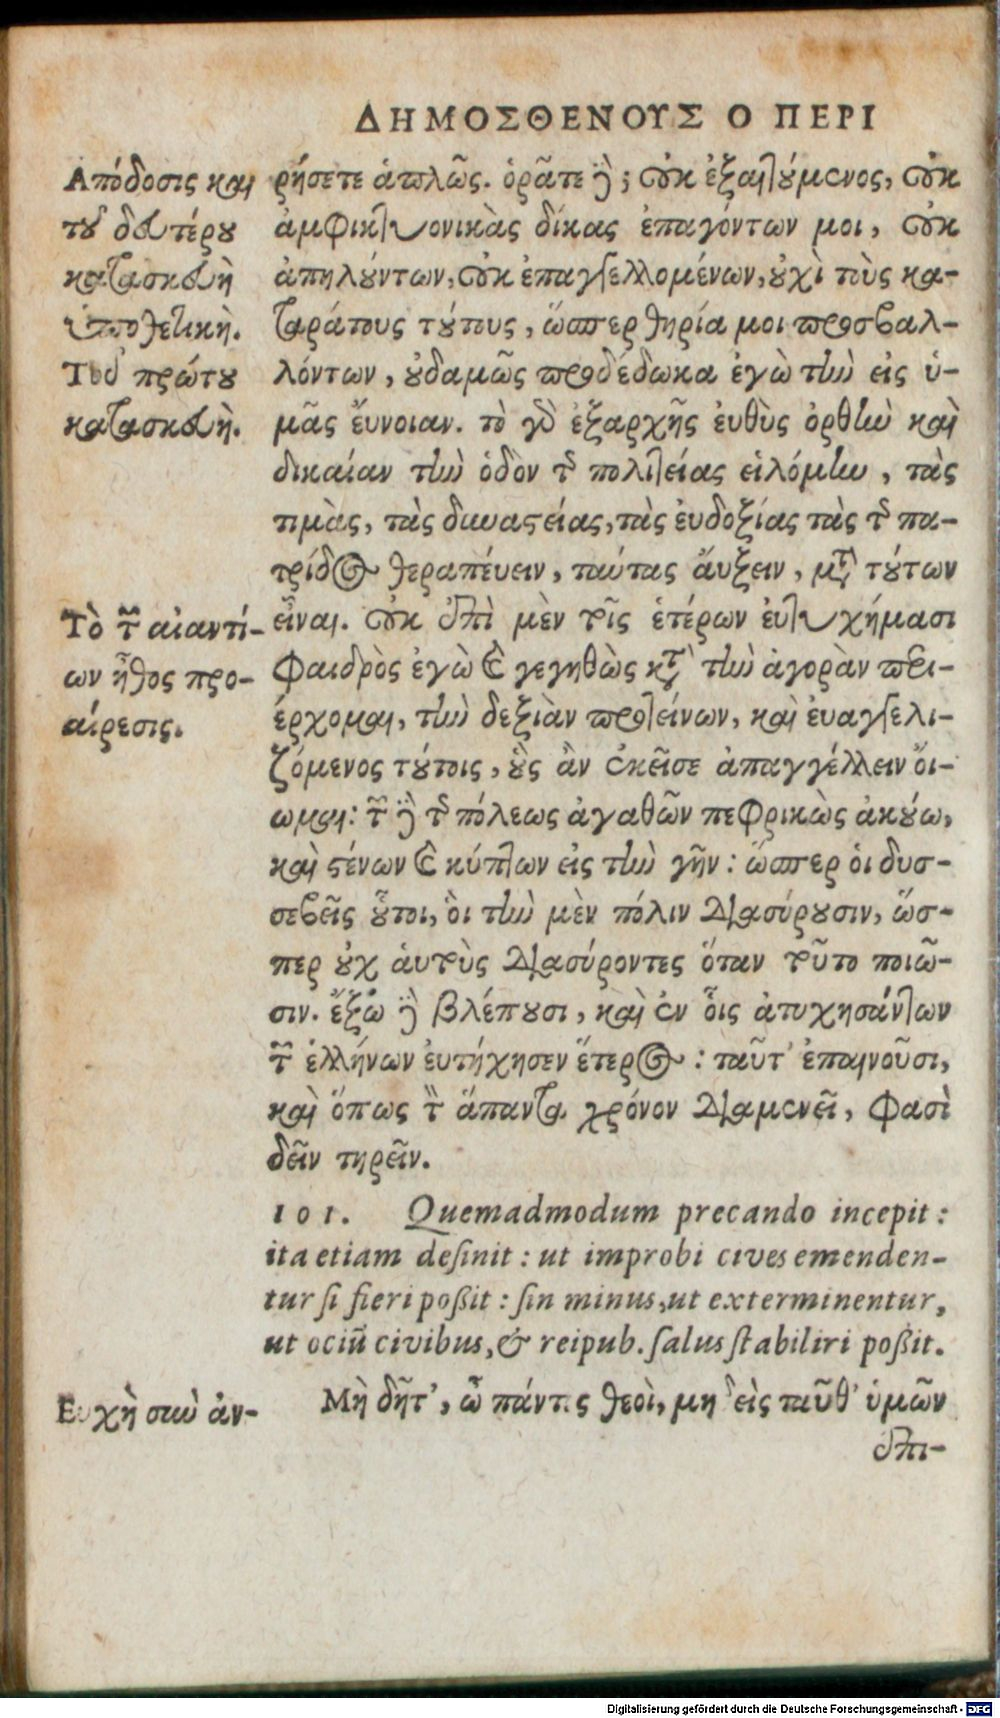 ΔΗΜΟΣΘΕΝΟΥΣ Ο ΠΕΡΙ
Ἀπόδοσις καὶ
τοῦ δευτέρου
κατασκευὴ
ὑποθετική.
Τοῦ πρώτου
κατασκευή.
ρήσετε ἁπλῶς. ὁρᾶτε δέ; οὐκ ἐξαιτούμενος, οὐκ
ἀμφικτυονικὰς δίκας ἐπαγόντων μοι, οὐκ
ἀπειλούντων, οὐκ ἐπαγγελλομένων, οὐχὶ τοὺς κα-
ταράτους τούτους, ὥσπερ θηρία μοι προσβαλ-
λόντων, οὐδαμῶς προδέδωκα ἐγὼ τὴν εἰς ὑ-
μᾶς εὔνοιαν. τὸ γὰρ ἐξαρχῆς εὐθὺς ὀρθὴν καὶ
δικαίαν τὴν ὁδὸν τῆς πολιτείας εἱλόμην, τὰς
τιμὰς, τὰς δυναστείας, τὰς εὐδοξίας τὰς τῆς πα-
τρίδος θεραπεύειν, ταύτας αὔξειν, μετὰ τούτων
Τὸ τῶν αἰαντί-
ων ἦθος προ-
αίρεσις.
εἶναι. οὐκ ἐπὶ μὲν τοῖς ἑτέρων εὐτυχήμασι
φαιδρὸς ἐγὼ καὶ γεγηθὼς κατὰ τὴν ἀγορὰν περι-
έρχομαι, τὴν δεξιὰν προτείνων, καὶ εὐαγγελι-
ζόμενος τούτοις, οὓς ἂν ἐκεῖσε ἀπαγγέλλειν οἴ-
ωμαι: τῶν δὲ τῆς πόλεως ἀγαθῶν πεφρικὼς ἀκούω,
καὶ στένων καὶ κύπτων εἰς τὴν γῆν: ὥσπερ οἱ δυσ-
σεβεῖς οὗτοι, οἳ τὴν μὲν πόλιν διασύρουσιν, ὥσ-
περ οὐχ αὑτοὺς διασύροντες ὅταν τοῦτο ποιῶ-
σιν. ἔξω δὲ βλέπουσι, καὶ ἐν οἷς ἀτυχησάντων
τῶν ἑλλήνων εὐτύχησεν ἕτερος: ταῦτ' ἐπαινοῦσι,
καὶ ὅπως τὸν ἅπαντα χρόνον διαμενεῖ, φασὶ
δεῖν τηρεῖν.
101. Quemadmodum precando incepit:
ita etiam desinit: ut improbi cives emenden-
tur si fieri poßit: sin minus, ut exterminentur,
ut ociũ civibus, & reipub. salus stabiliri poßit.
Εὐχὴ σὺν ἀν-
Μὴ δῆτ', ὦ πάντες θεοὶ, μηδεὶς ταῦθ' ὑμῶν
ἐπι-
Digitalisierung gefördert durch die Deutsche Forschungsgemeinschaft - DFG